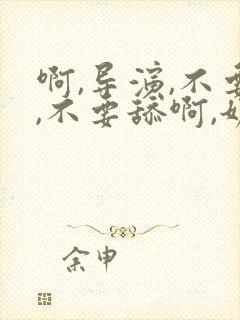 啊,导演,不要
,不要舔啊,
余申